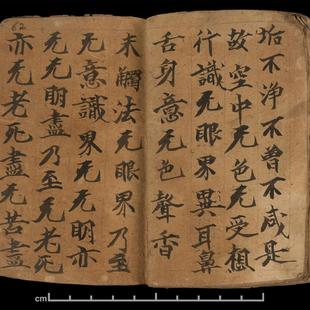 垢不净不曾不咸是
故空中无色无受想
行識无眼界異耳鼻
舌身意无色聲香
未觸法无眼界乃至
无意識界无无明亦
无无明盡乃至无老死
亦无老死盡无苦盡
62
cm